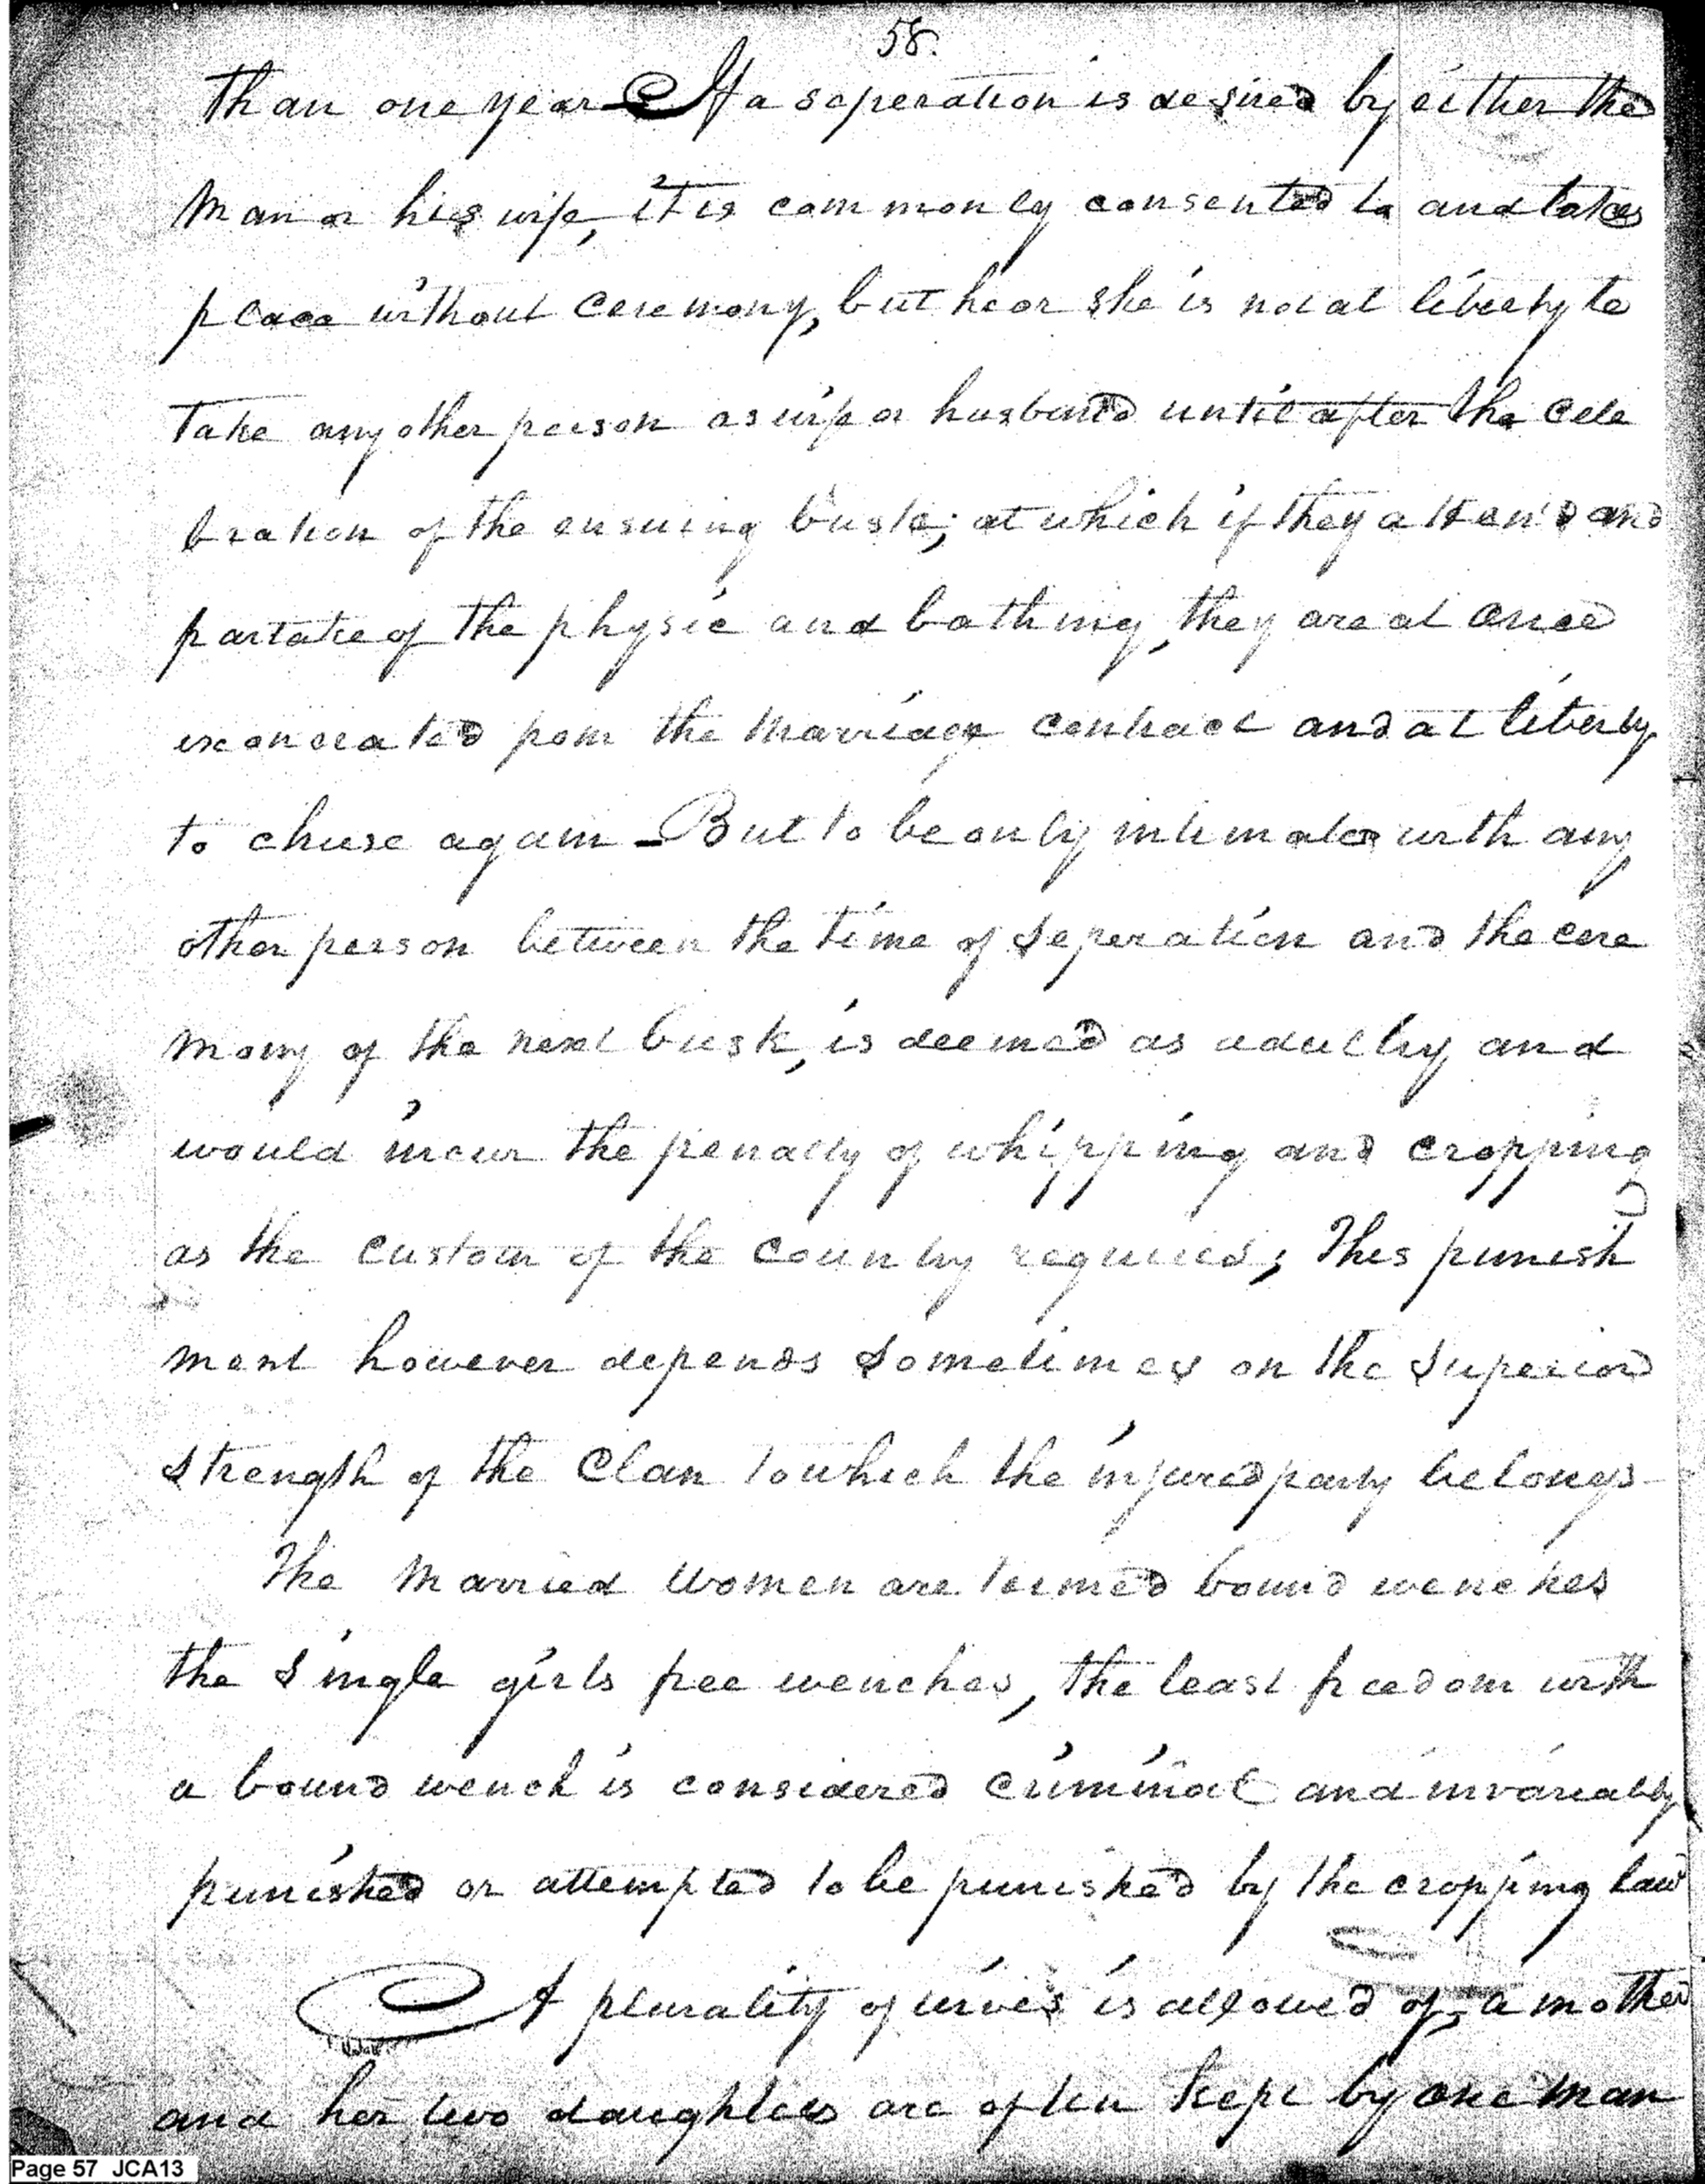 58.
than one year If a seperation is desired by either the
man or his wife, it is commonly consented to and takes
place without ceremony, but he or she is not at liberty to
take any other person as wife or husband until after the cele
bration of the ensuing busk; at which if they attend and
partake of the physic and bathing, they are at once
exonerated from the marriage contract and at liberty
to chuse again – But to be only intimate with any
other person between the time of seperation and the cere
mony of the next busk, is deemed as adultry and
would incur the penalty of whipping and cropping
as the custom of the country requires; This punish
ment however depends sometimes on the superior
strength of the Clan to which the injured party belongs –
The married women are termed bound wenches
the single girls free wenches, the least freedom with
a bound wench is considered criminal and invariably
punished or attempted to be punished by the cropping law
A plurality of wives is allowed of, a mother
and her two daughters are often kept by one man
Page 57 JCA13